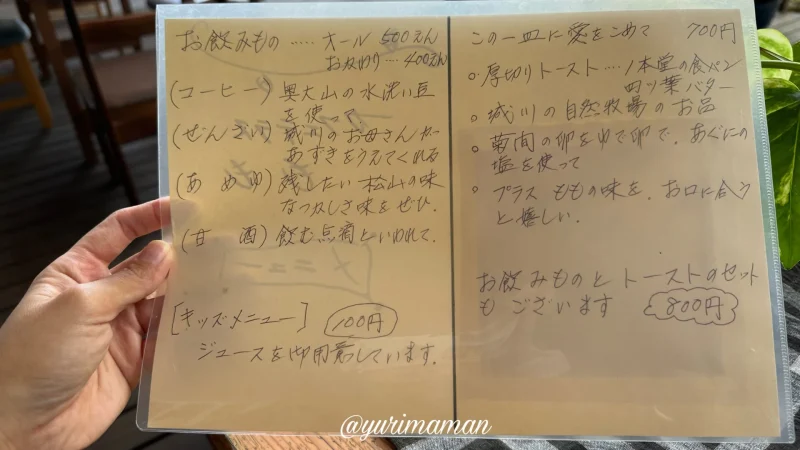 お飲みもの ‥‥‥ オール 500えん
おかわり ‥‥ 400えん
(コーヒー) 奥大山の水洗い豆
を使って
(ぜんざい) 城川のお母さんが
あずきをうえてくれる
(あめゆ) 残したい 松山の味
なつかしさ味をぜひ.
(甘酒) 飲む点滴といわれて.
[キッズメニュー] 100円
ジュースを御用意しています.
この一皿に愛をこめて 700円
○ 厚切りトースト ‥‥ 一本堂の食パン
四ツ葉バター
○ 城川の自然牧場のお品
○ 菊間の卵をゆで卵で. あぐにの
塩を使って
○ プラス ももの味を. お口に合う
と嬉しい.
お飲みものとトーストのセット
も ございます 800円
メニュー
@yurimaman